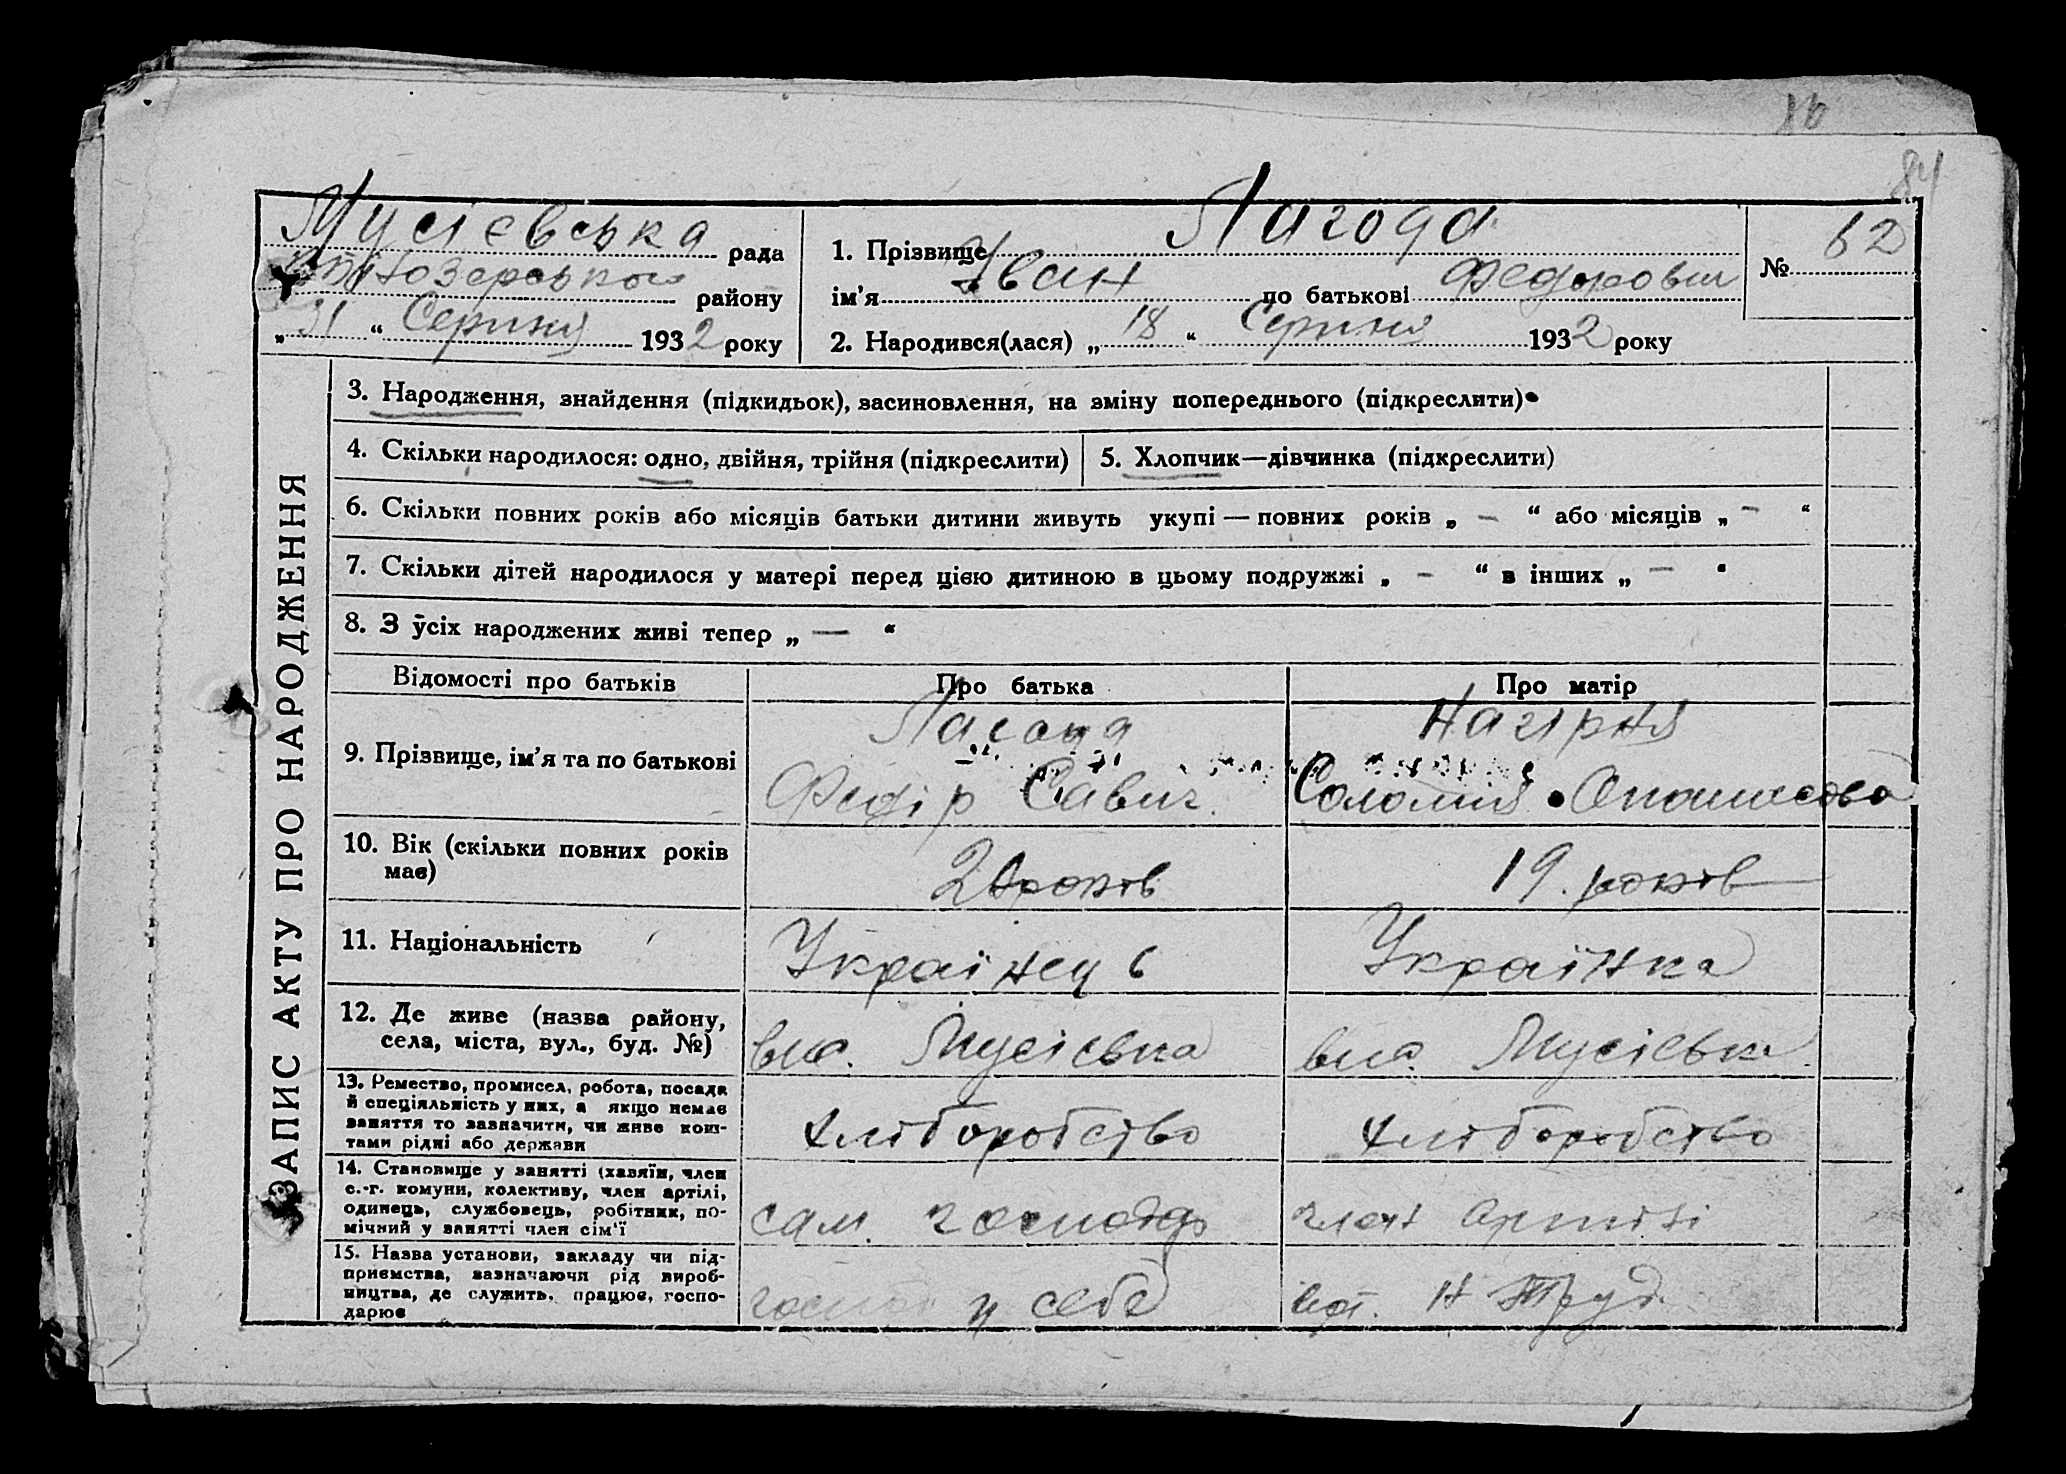 84
Мусієвська рада
району
„ 31 “ Серпня 1932 року
1. Прізвище Лагода
ім’я Іван по батькові Федорович
2. Народився(лася) „ 18 “ Серпня 1932 року
№ 62
ЗАПИС АКТУ ПРО НАРОДЖЕННЯ
3. Народження, знайдення (підкидьок), засиновлення, на зміну попереднього (підкреслити)
4. Скільки народилося: одно, двійня, трійня (підкреслити)
5. Хлопчик—дівчинка (підкреслити)
6. Скільки повних років або місяців батьки дитини живуть укупі — повних років „ — “ або місяців „ — “
7. Скільки дітей народилося у матері перед цією дитиною в цьому подружжі „ — “ в інших „ — “
8. З усіх народжених живі тепер „ — “
Відомості про батьків Про батька Про матір
9. Прізвище, ім’я та по батькові
Лагода
Федір Савич.
Нагірня
Соломия Опанасова
10. Вік (скільки повних років
має)
років
19. років
11. Національність
Українець
Українка
12. Де живе (назва району,
села, міста, вул., буд. №)
Мусієвка
Мусієвка
13. Ремество, промисел, робота, посада
й спеціяльність у них, а якщо немає
заняття то зазначити, чи живе кош-
тами рідні або держави
хліборобство
хліборобство
14. Становище у занятті (хазяїн, член
с.-г. комуни, колективу, член артілі,
одинець, службовець, робітник, по-
мічний у занятті член сім’ї
сам. господар
член артілі
15. Назва установи, закладу чи під-
приємства, зазначаючи рід вироб-
ництва, де служить, працює, госпо-
дарює
у себе
Н Труд.